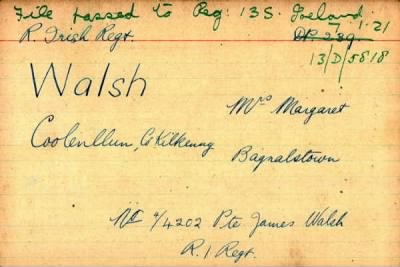 File passed to Reg: 13S. Ireland
R. Irish Regt.
1.21
13/D/5818
Walsh
Mrs Margaret
Coolenllun, Co Kilkenny
Bagnalstown
No 4/4202 Pte James Walsh
R. I Regt.